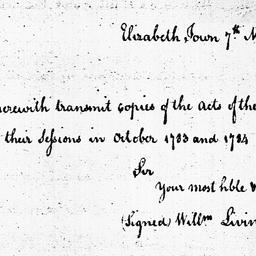 Elizabeth Town 7th
herewith transmit copies of the acts of the
their Sessions in October 1783 and 1784
Sir
Your most hble
(Signed) Willm